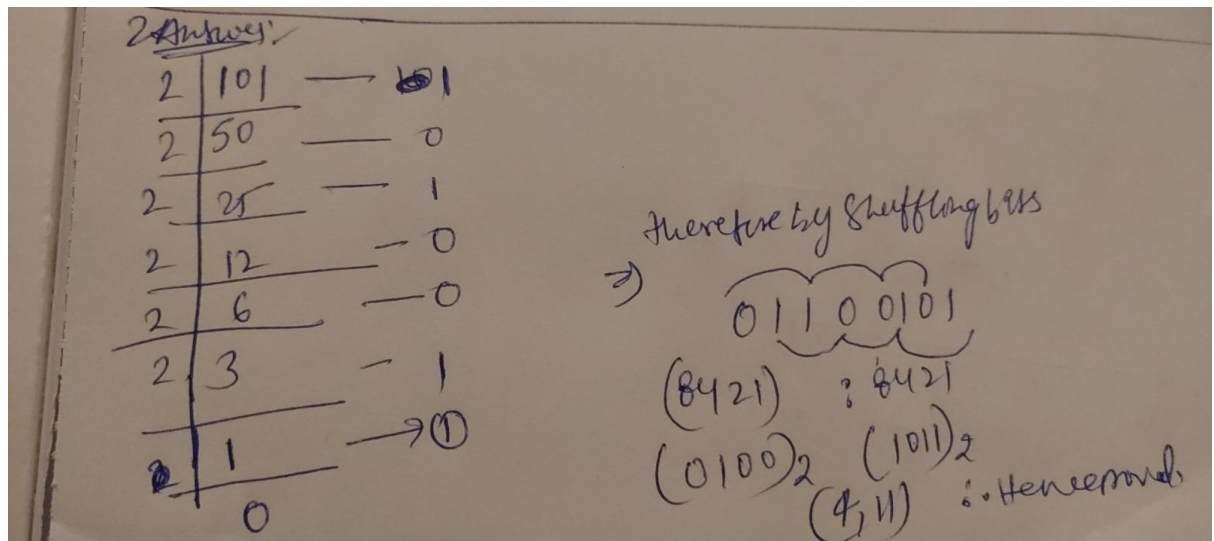 2 Answer:
2 101 — 1
2 50 — 0
2 25 — 1
2 12 — 0
2 6 — 0
2 3 — 1
2 1 → 1
0
therefore by Shuffling bits
⇒) 01100101
(8421) : 8421
(0100)2 (1011)2
(4,11) ∴ Hence proved